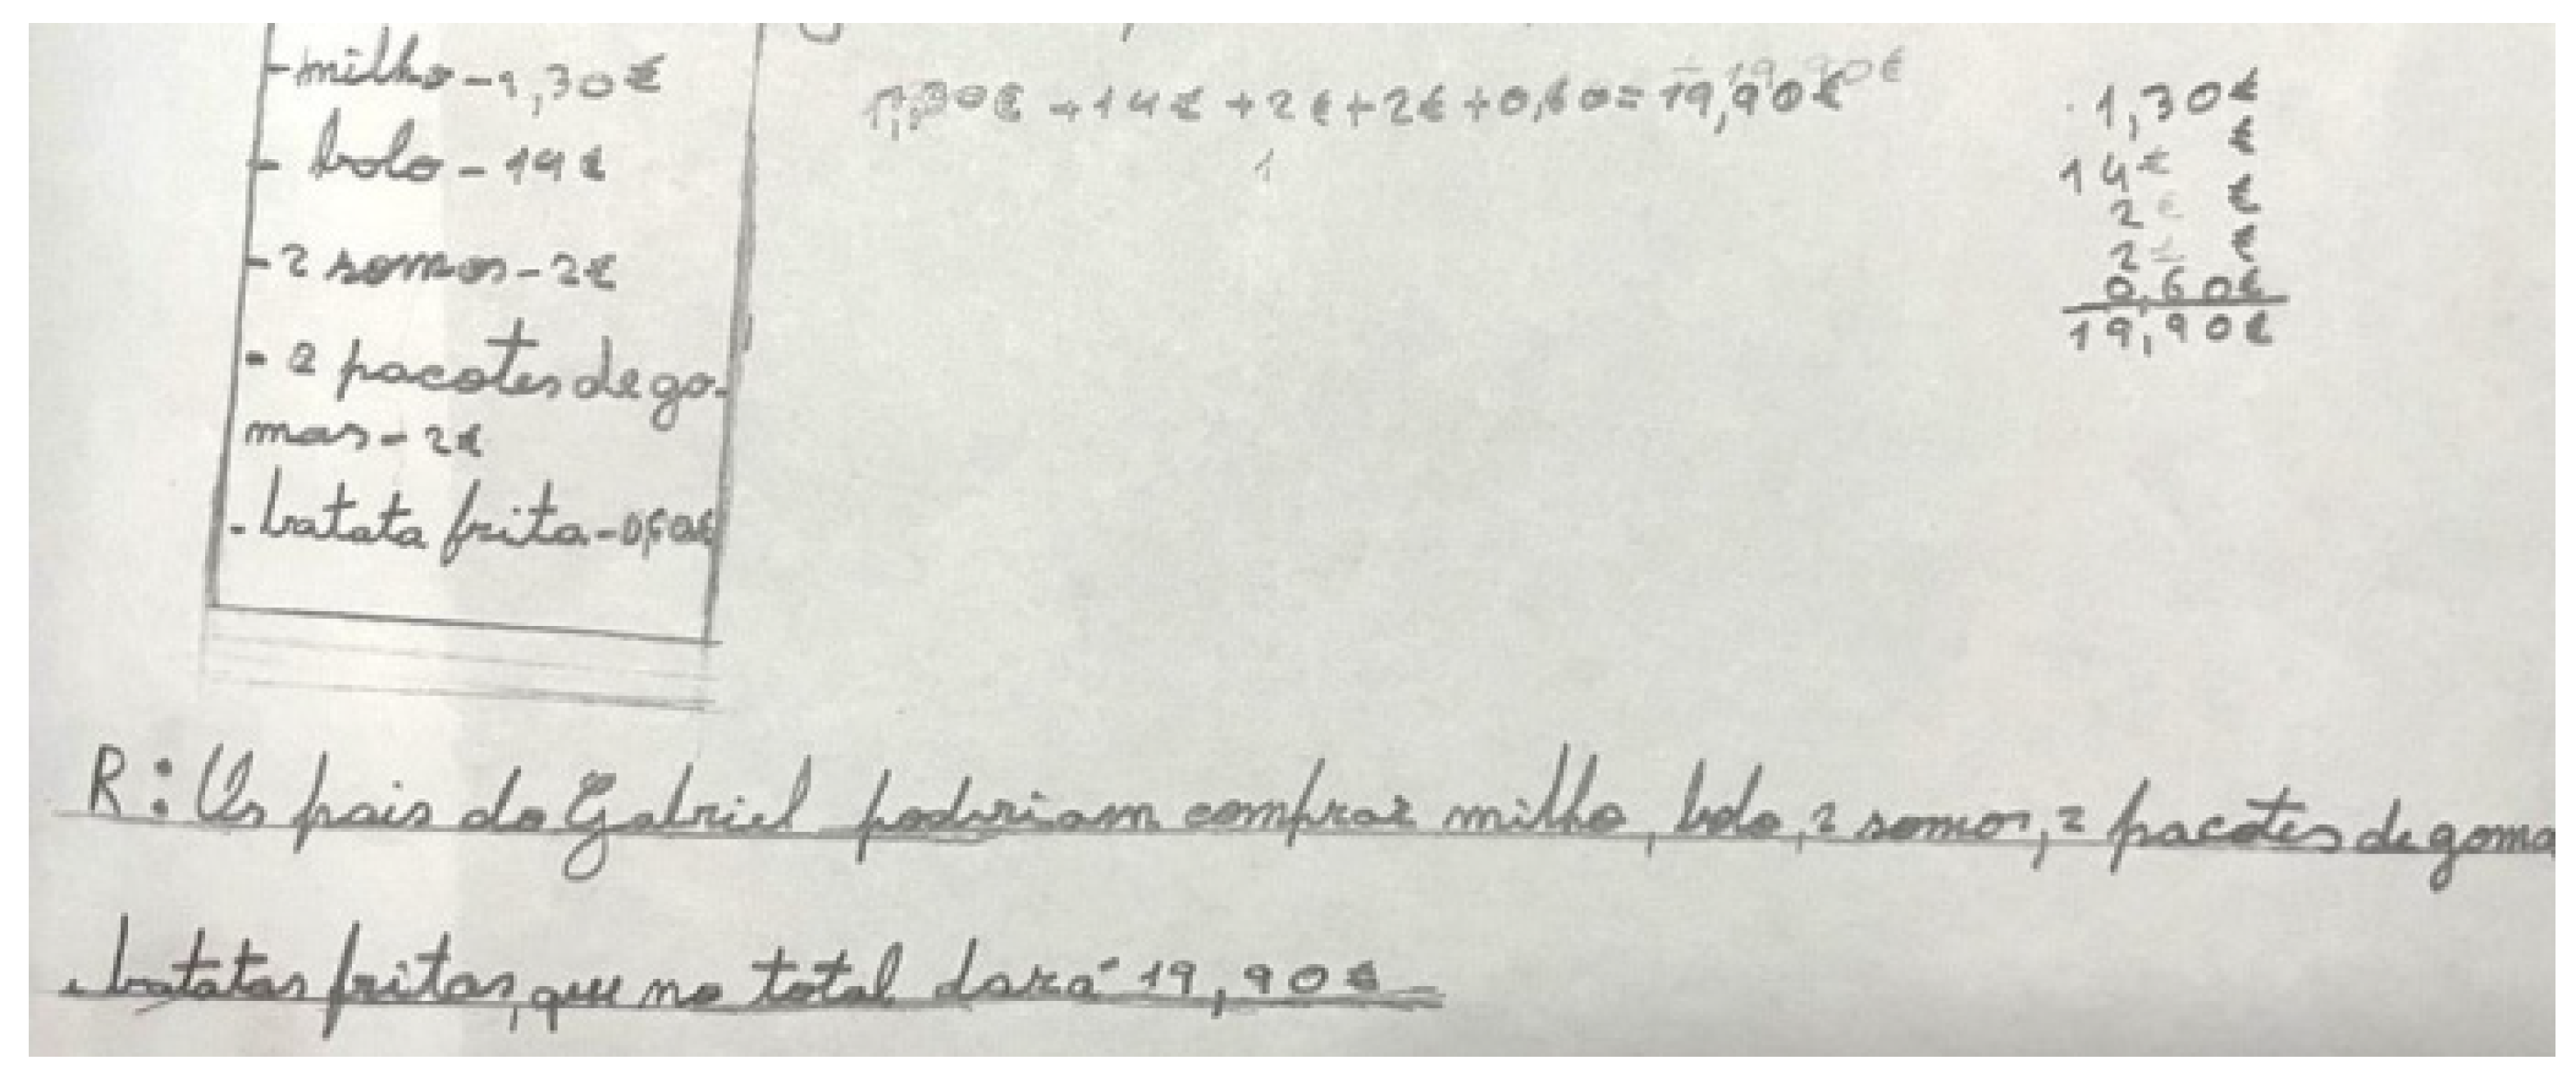 - milho - 1,30€
- bolo - 14€
- 2 somos - 2€
- 2 pacotes de go-
mas - 2€
- batata frita - 0,60€
1,30€ + 14€ + 2€ + 2€ + 0,60 = 19,90€
1
1,30€
14€
2€
2€
0,60€
19,90€
R: Os pais do Gabriel poderiam comprar milho, bolo, 2 somos, 2 pacotes de goma
e batatas fritas, que no total dará 19,90€